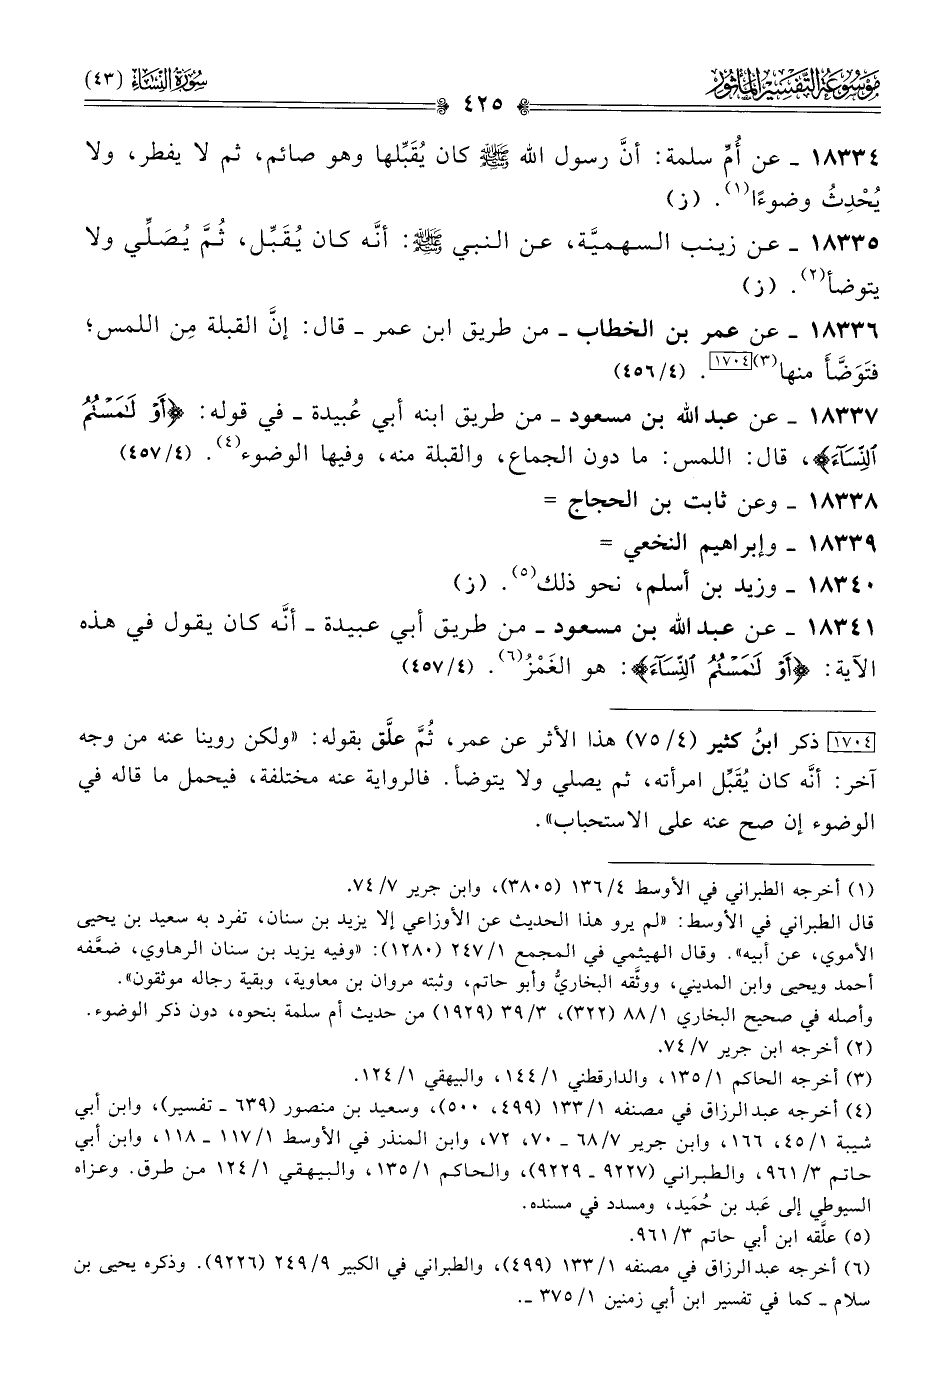 موسوعة التفسير المأثور
سورة النساء (٤٣)
٤٢٥
١٨٣٣٤ ـ عن أُمِّ سلمة: أنَّ رسول الله ﷺ كان يُقَبِّلها وهو صائم، ثم لا يفطر، ولا
يُحْدِثُ وضوءًا(١). (ز)
١٨٣٣٥ ـ عن زينب السهميَّة، عن النبي ﷺ: أنَّه كان يُقَبِّل، ثُمَّ يُصَلِّي ولا
يتوضأ(٢). (ز)
١٨٣٣٦ ـ عن عمر بن الخطاب ـ من طريق ابن عمر ـ قال: إنَّ القبلة مِن اللمس؛
فتَوَضَّأ منها(٣)[١٧٠٤]. (٤/٤٥٦)
١٨٣٣٧ ـ عن عبد الله بن مسعود ـ من طريق ابنه أبي عُبيدة ـ في قوله: ﴿أَوْ لَٰمَسْتُمُ
ٱلنِّسَآءَ﴾، قال: اللمس: ما دون الجماع، والقبلة منه، وفيها الوضوء(٤). (٤/٤٥٧)
١٨٣٣٨ ـ وعن ثابت بن الحجاج =
١٨٣٣٩ ـ وإبراهيم النخعي =
١٨٣٤٠ ـ وزيد بن أسلم، نحو ذلك(٥). (ز)
١٨٣٤١ ـ عن عبد الله بن مسعود ـ من طريق أبي عبيدة ـ أنَّه كان يقول في هذه
الآية: ﴿أَوْ لَٰمَسْتُمُ ٱلنِّسَآءَ﴾: هو الغَمْزُ(٦). (٤/٤٥٧)
[١٧٠٤] ذكر ابنُ كثير (٤/٧٥) هذا الأثر عن عمر، ثُمَّ علَّق بقوله: «ولكن روينا عنه من وجه
آخر: أنَّه كان يُقَبِّل امرأته، ثم يصلي ولا يتوضأ. فالرواية عنه مختلفة، فيحمل ما قاله في
الوضوء إن صح عنه على الاستحباب».
(١) أخرجه الطبراني في الأوسط ٤/١٣٦ (٣٨٠٥)، وابن جرير ٧/٧٤.
قال الطبراني في الأوسط: «لم يرو هذا الحديث عن الأوزاعي إلا يزيد بن سنان، تفرد به سعيد بن يحيى
الأموي، عن أبيه». وقال الهيثمي في المجمع ١/٢٤٧ (١٢٨٠): «وفيه يزيد بن سنان الرهاوي، ضعَّفه
أحمد ويحيى وابن المديني، ووثَّقه البخاريُّ وأبو حاتم، وثبته مروان بن معاوية، وبقية رجاله موثقون».
وأصله في صحيح البخاري ١/٨٨ (٣٢٢)، ٣/٣٩ (١٩٢٩) من حديث أم سلمة بنحوه، دون ذكر الوضوء.
(٢) أخرجه ابن جرير ٧/٧٤.
(٣) أخرجه الحاكم ١/١٣٥، والدارقطني ١/١٤٤، والبيهقي ١/١٢٤.
(٤) أخرجه عبد الرزاق في مصنفه ١/١٣٣ (٤٩٩، ٥٠٠)، وسعيد بن منصور (٦٣٩ ـ تفسير)، وابن أبي
شيبة ١/٤٥، ١٦٦، وابن جرير ٧/٦٨ ـ ٧٠، ٧٢، وابن المنذر في الأوسط ١/١١٧ ـ ١١٨، وابن أبي
حاتم ٣/٩٦١، والطبراني (٩٢٢٧ ـ ٩٢٢٩)، والحاكم ١/١٣٥، والبيهقي ١/١٢٤ من طرق. وعزاه
السيوطي إلى عَبد بن حُمَيد، ومسدد في مسنده.
(٥) علَّقه ابن أبي حاتم ٣/٩٦١.
(٦) أخرجه عبد الرزاق في مصنفه ١/١٣٣ (٤٩٩)، والطبراني في الكبير ٩/٢٤٩ (٩٢٢٦). وذكره يحيى بن
سلام ـ كما في تفسير ابن أبي زمنين ١/٣٧٥ ـ.